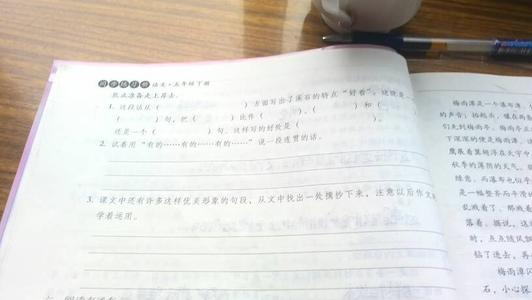 同步练习册 语文·五年级下册
就成准备走上岸去。
1. 这段话从（ ）方面写出了溪石的特点“好看”。这就是一
（ ）句，把（ ）比作（ ）、（ ）和（
还是一个（ ）句。这样写的好处是（
2. 试着用“有的……有的……有的……”说一段连贯的话。
3. 课文中还有许多这样优美形象的句段，从文中找出一处摘抄下来，注意以后作文
学着运用。
梅雨潭是一个瀑布潭
的声音；抬起头，镶在两条
们先到梅雨亭。梅雨亭正
了深深的便是梅雨潭。这
鹰展着翼翅浮在天宇中
秋季的薄阴的天气。
绿意。而瀑布也似乎
是一幅整齐而平滑
乱溅着了。那溅着
落着。据说，这
时，点点随风飘
钻了进去，再
梅雨潭闪
石，小心探